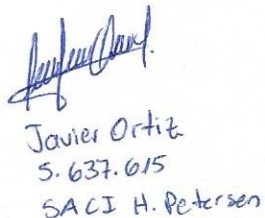 Javier Ortiz
5.637.615
SACI H. Petersen